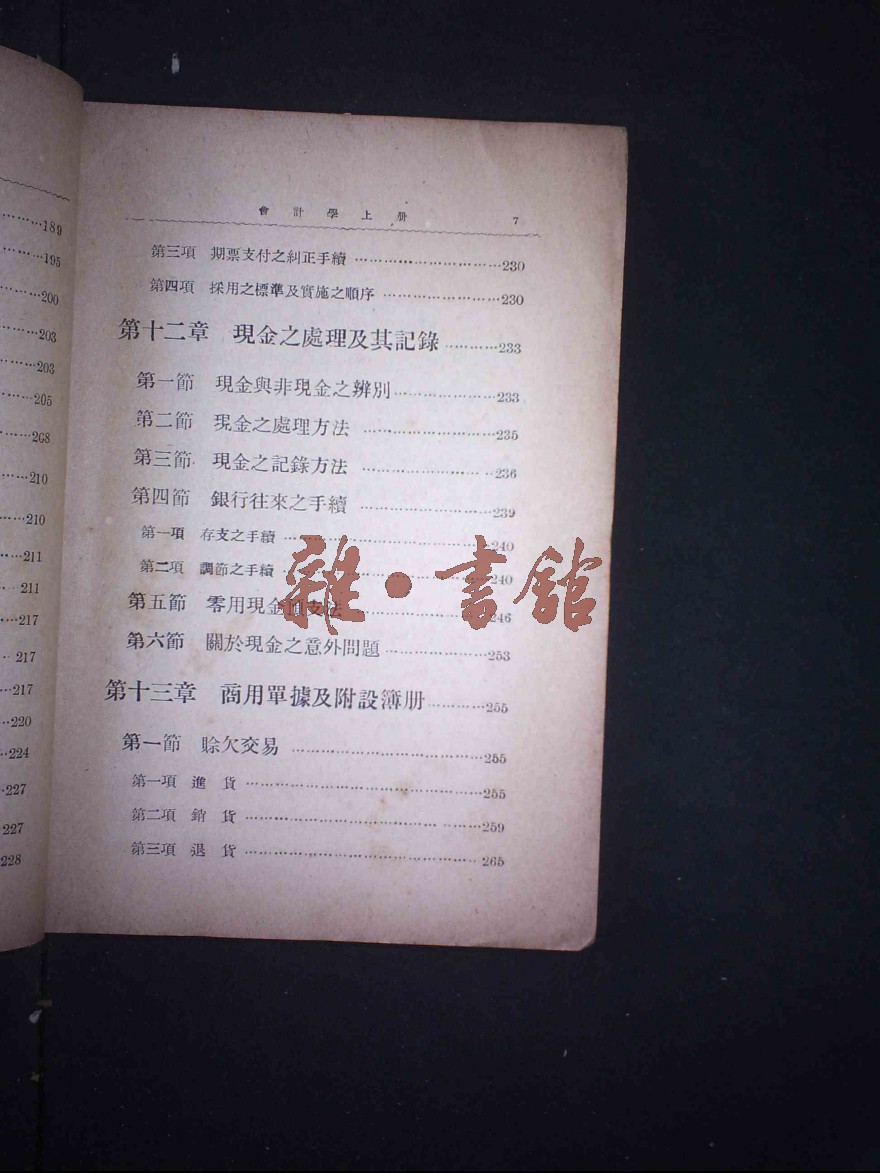 189
195
200
203
203
205
208
210
210
211
211
217
217
217
220
224
227
227
228
會計學上册 7
第三項 期票支付之糾正手續 ……………………230
第四項 採用之標準及實施之順序 ……………………230
第十二章 現金之處理及其記錄 …………233
第一節 現金與非現金之辨別 ……………………233
第二節 現金之處理方法 ……………………235
第三節 現金之記錄方法 ……………………236
第四節 銀行往來之手續 ……………………239
第一項 存支之手續 ……………………240
第二項 調節之手續 ……………………240
第五節 零用現金預支法 ……………………246
第六節 關於現金之意外問題 ……………………253
第十三章 商用單據及附設簿册 …………255
第一節 賒欠交易 ……………………255
第一項 進貨 ……………………255
第二項 銷貨 ……………………259
第三項 退貨 ……………………265
雜·書館